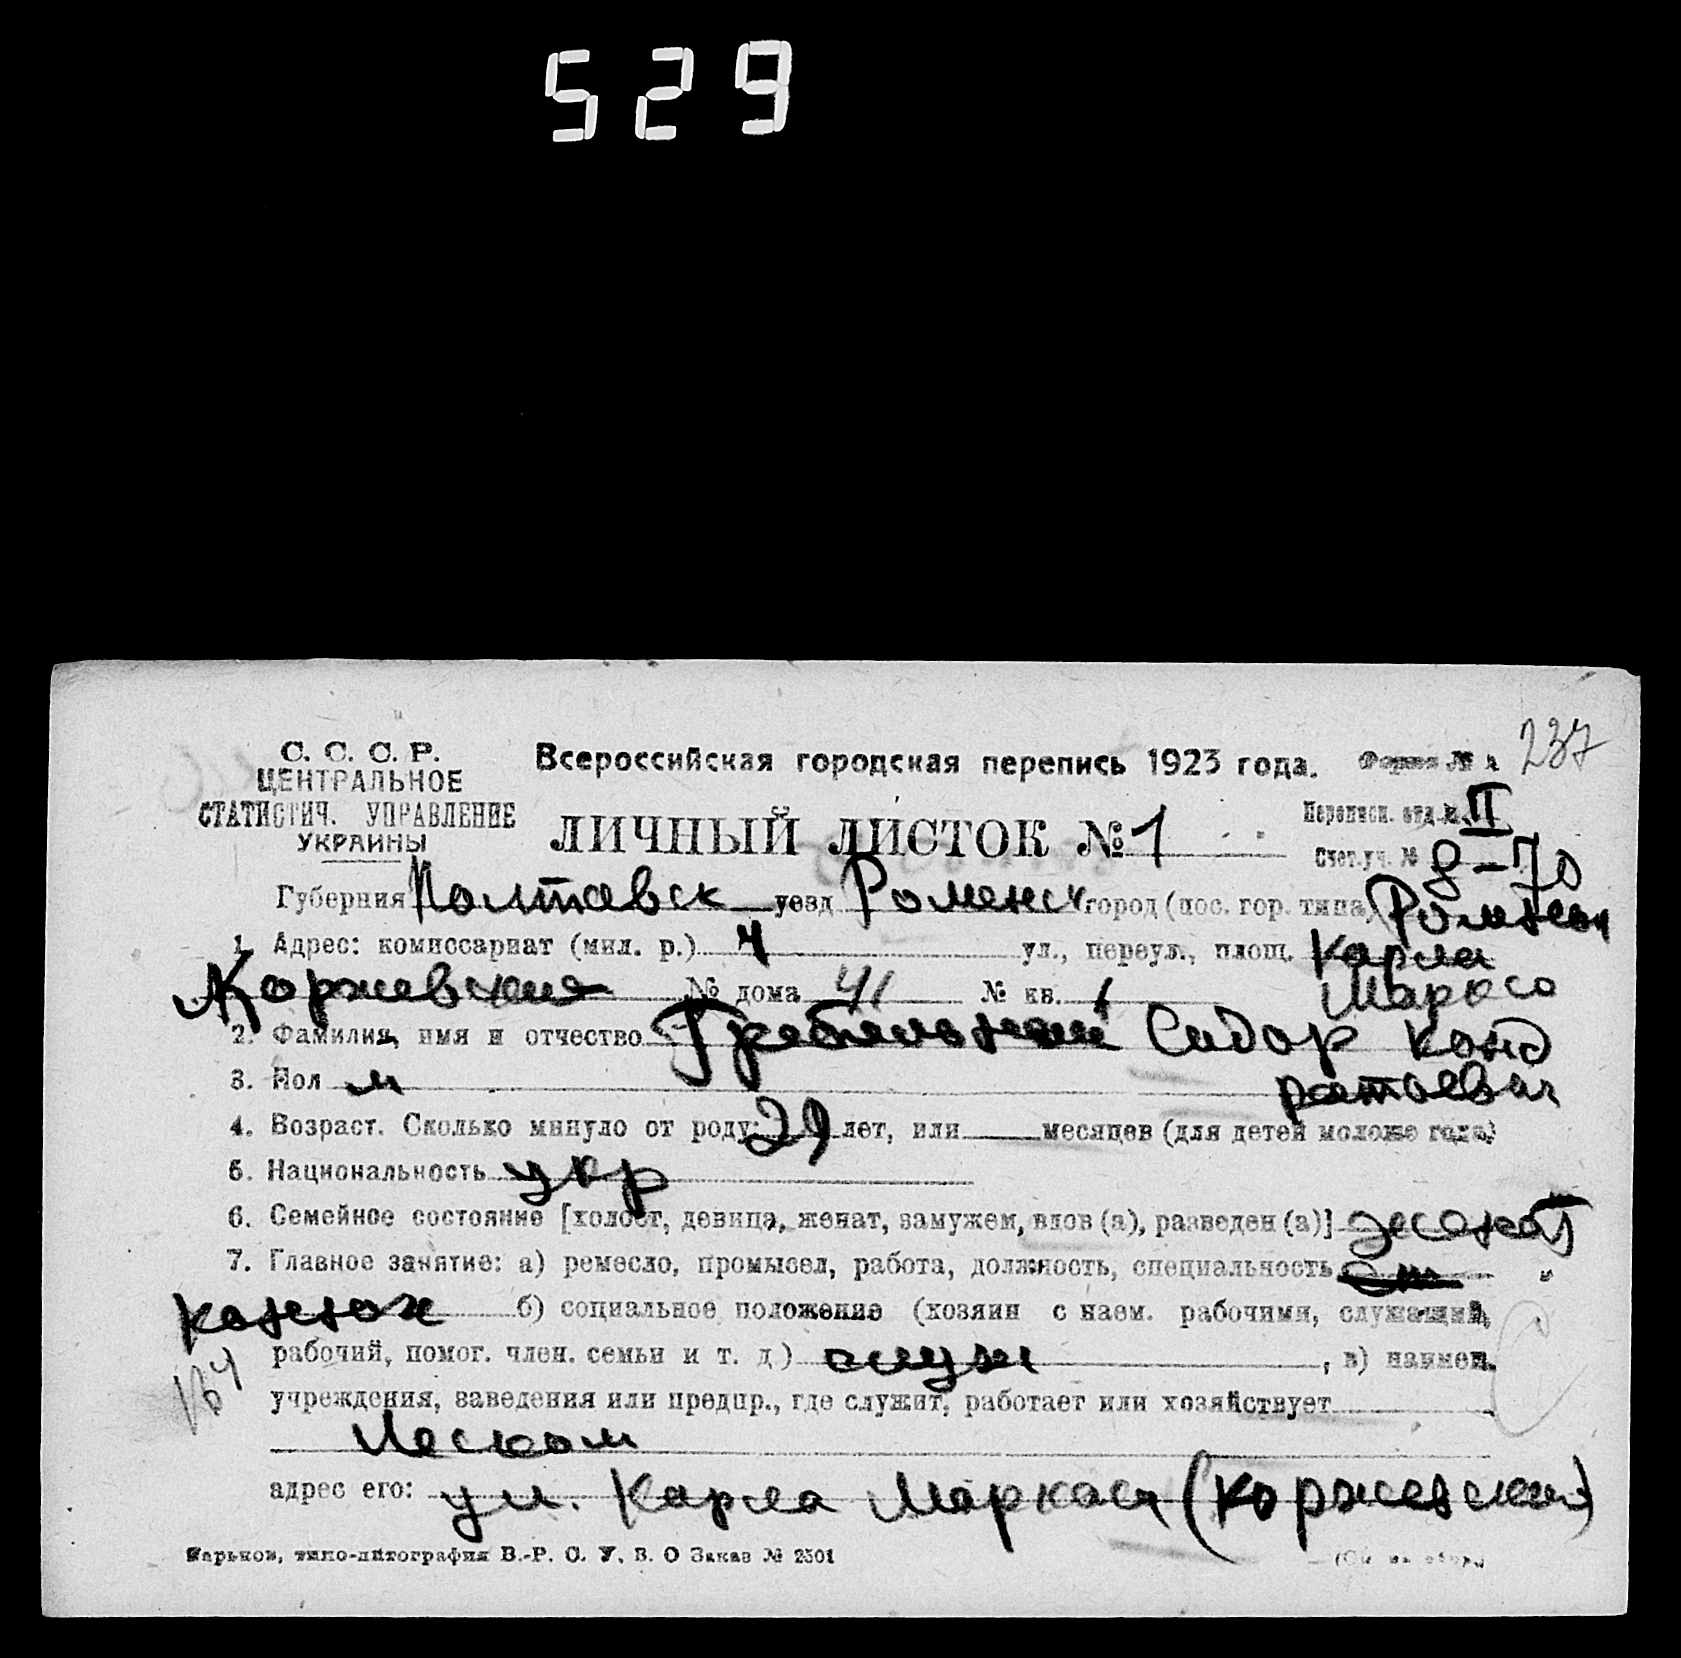 529
С. С. С. Р.
ЦЕНТРАЛЬНОЕ
СТАТИСТИЧ. УПРАВЛЕНИЕ
УКРАИНЫ
Всероссийская городская перепись 1923 года.
Форма № 237
ЛИЧНЫЙ ЛИСТОК № 1
Переписн. отд. № II
Счет. уч. № 8-70
Губерния Полтавск уезд Роменск город (пос. гор. типа)
1. Адрес: комиссариат (мил. р.) 4 ул., переул., площ. Карла
Коржевская № дома 41 № кв. 1
2. Фамилия, имя и отчество Гребельный Сидор Конд
3. Пол м ратович
4. Возраст. Сколько минуло от роду: 29 лет, или месяцев (для детей моложе года)
5. Национальность укр
6. Семейное состояние [холост, девица, женат, замужем, вдов (а), разведен (а)] женат
7. Главное занятие: а) ремесло, промысел, работа, должность, специальность
б) социальное положение (хозяин с наем. рабочими, служащий,
рабочий, помог. член. семьи и т. д.) служ , в) наимен.
учреждения, заведения или предпр., где служит, работает или хозяйствует
адрес его: ул. Карла Маркса (Коржевская)
Харьков, типо-литография В.-Р. С. У. В. О Заказ № 2501